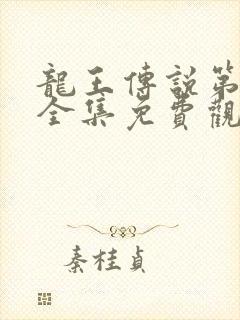 龍王傳說第
全集免費觀
秦桂貞